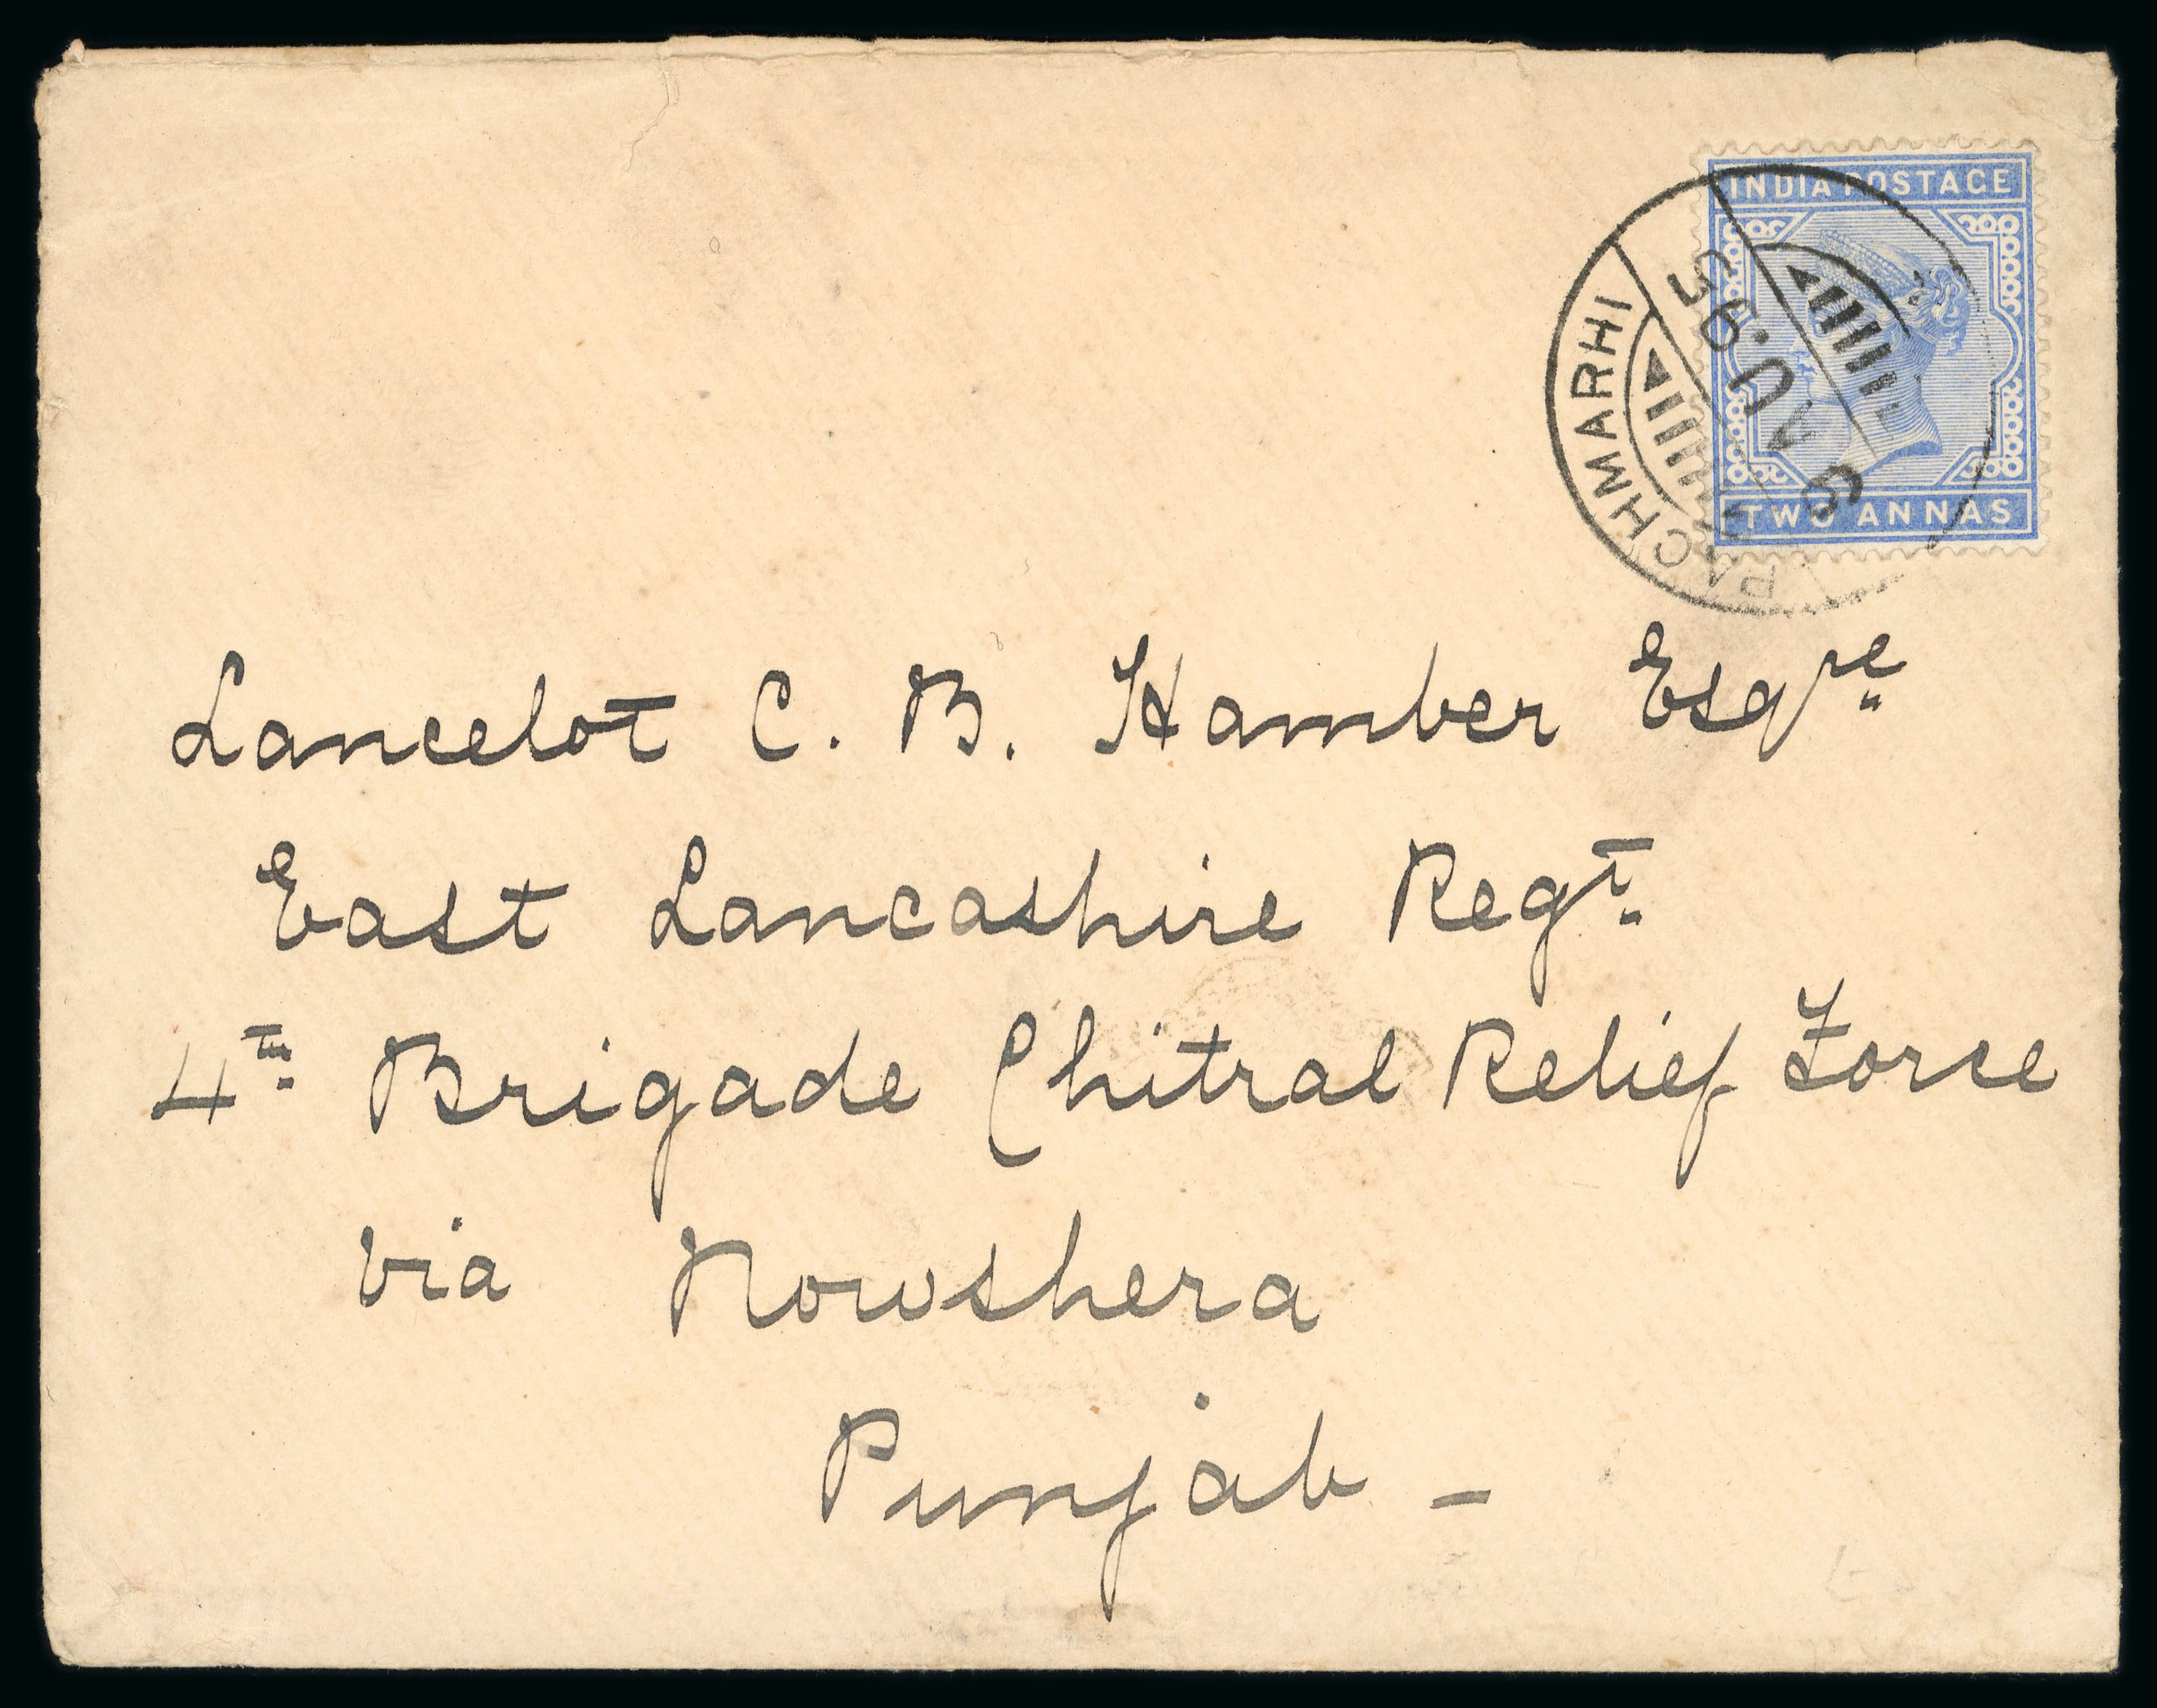 INDIA POSTAGE
TWO ANNAS
PACHMARHI
9 AU.95
Lancelot C. B. Hamber Esqre
East Lancashire Regt
4th Brigade Chitral Relief Force
via Nowshera
Punjab -